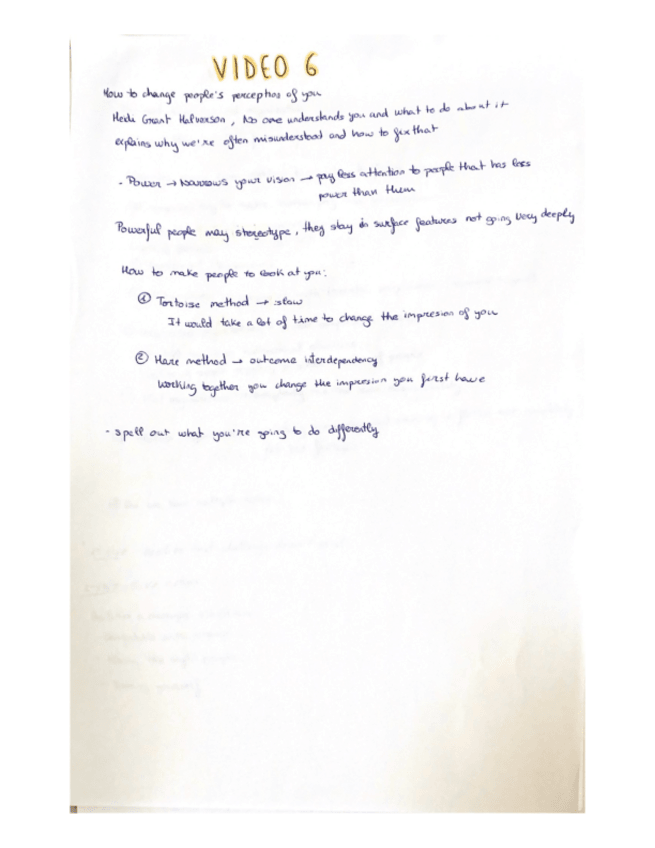 VIDEO 6
How to change people's perception of you
Heidi Grant Halverson, No one understands you and what to do about it
explains why we're often misunderstood and how to fix that
- Power → Narrows your vision → pay less attention to people that has less
power than them
Powerful people may stereotype, they stay in surface features not going very deeply
How to make people to look at you:
① Tortoise method → slow
It would take a lot of time to change the impresion of you
② Hare method → outcome interdependency
working together you change the impresion you first have
- spell out what you're going to do differently